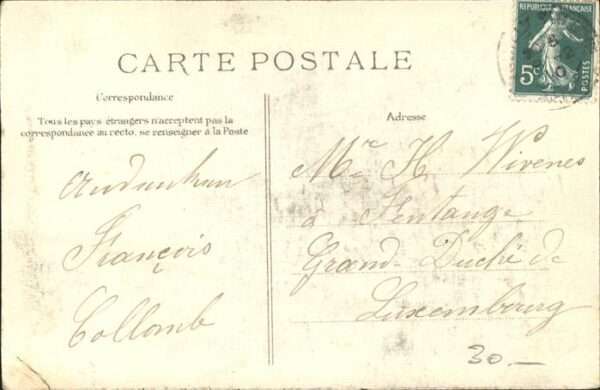 REPUBLIQUE FRANÇAISE
5c
POSTES
CARTE POSTALE
Correspondance
Tous les pays étrangers n'acceptent pas la
correspondance au recto, se renseigner à la Poste
Adresse
François
Collomb
Mr H. Wivenes
à Hentange
Grand Duché de
Luxembourg
30.—